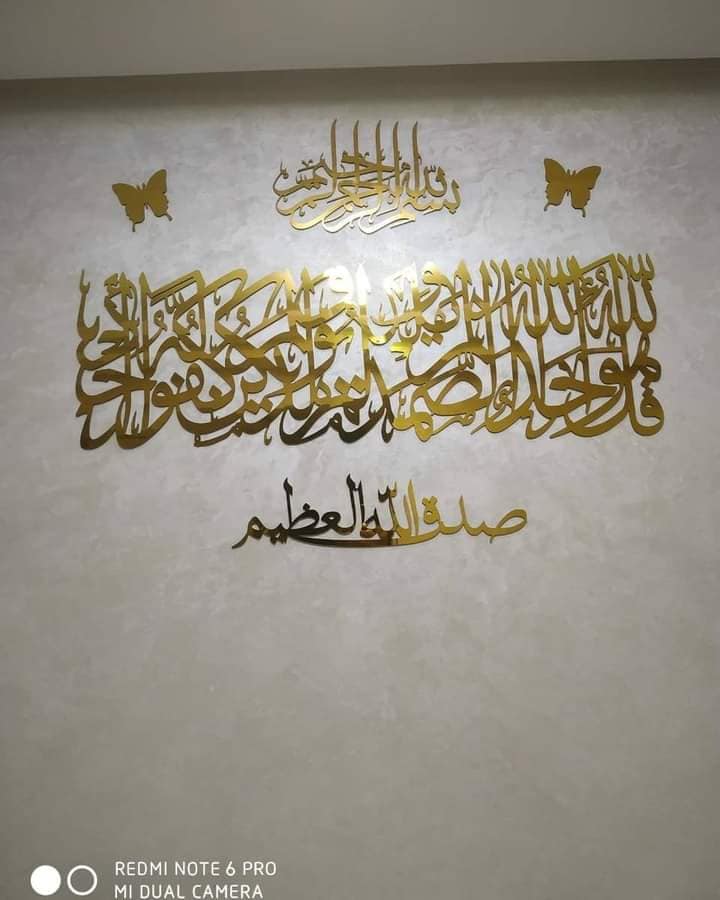 بسم الله الرحمن الرحيم
قل هو الله أحد الله الصمد لم يلد ولم يولد ولم يكن له كفوا أحد
صدق الله العظيم
REDMI NOTE 6 PRO
MI DUAL CAMERA